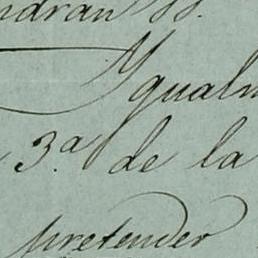 ndran SS.
Ygualm
3.a de la
pretender